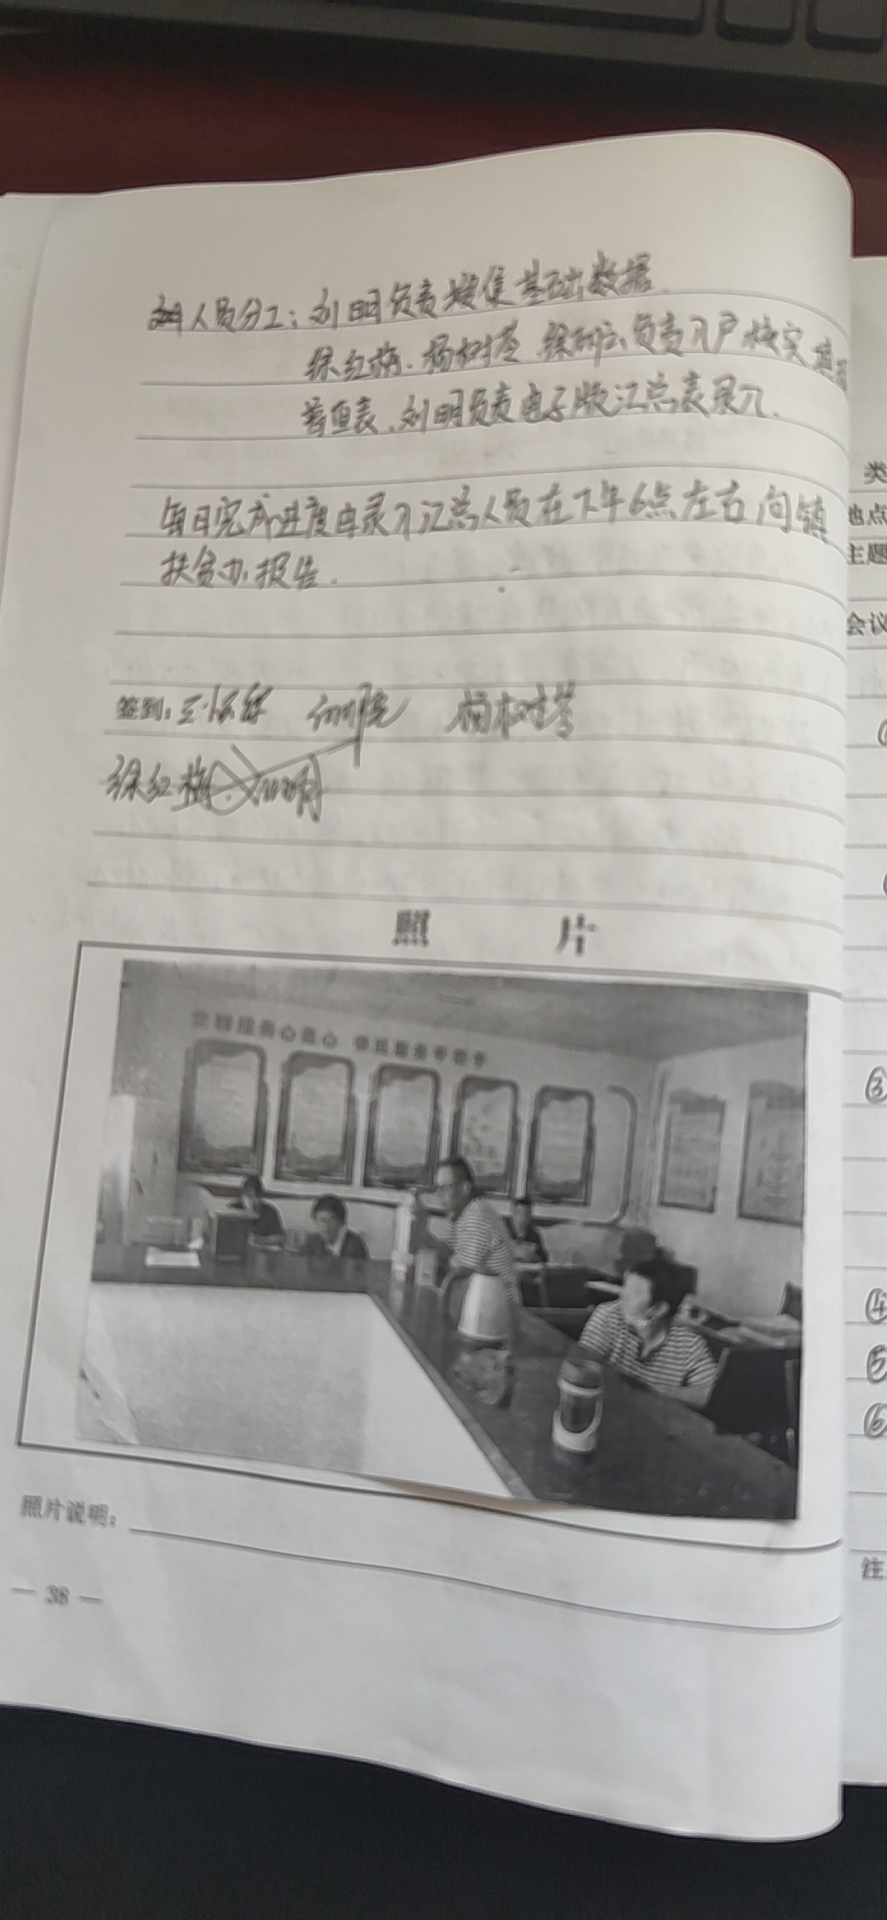 人员分工：刘明负责搜集基础数据.
徐红梅.杨树苓 徐 负责入户核实填写
普查表.刘明负责电子版汇总表录入.
每日完成进度由录入汇总人员在下午6点左右向镇
扶贫办报告.
签到： 杨树苓
徐红梅
照 片
照片说明：
— 38 —
类
地点
主题
会议
③
④
⑤
⑥
注